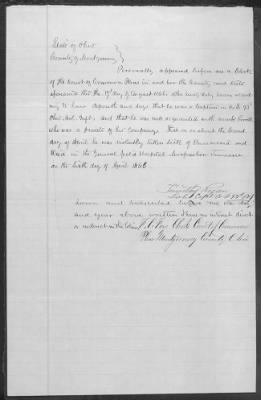 State of Ohio
County of Montgomery
Personally appeared before me a Clerk
of the Court of Common Pleas in and for the County and State
aforesaid this the 17 day of August 1865 who being duly sworn
to Law deposeth and says that he was a Captain in Co 93
Ohio Vol. Inft; and that he was well acquainted with
who was a private of his Company. That on or about the Second
day of April he was violently taken sick of Pneumonia and
died in the General Field Hospital Tennessee
on the Sixth day of April 1865
Sworn and subscribed before me the day
and year above written I have no interest direct
or indirect in this claim Clerk Court of Common
Pleas Montgomery County Ohio